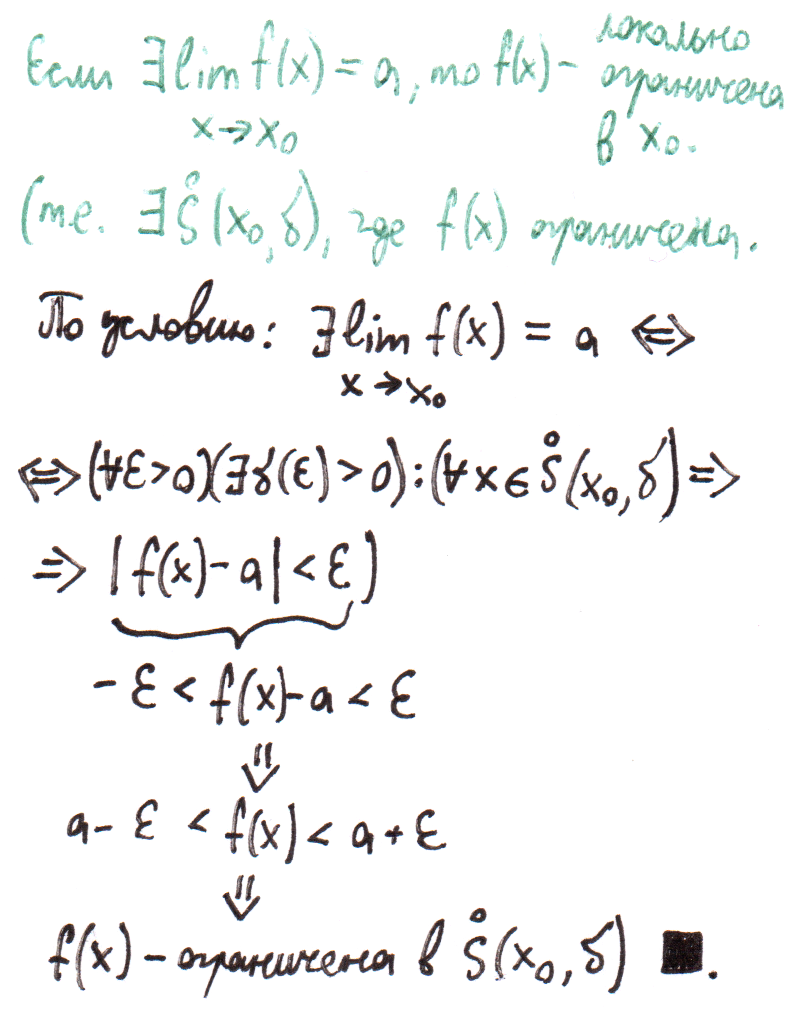 Если ∃ lim f(x) = a, то f(x) - локально ограничена в x₀.
x→x₀
(т.е. ∃ S̊(x₀, δ), где f(x) ограничена.
По условию: ∃ lim f(x) = a ⇔
x→x₀
⇔ (∀ε>0)(∃δ(ε)>0):(∀x∈S̊(x₀,δ) ⇒
⇒ |f(x)-a|<ε)
-ε < f(x)-a < ε
⇓
a-ε < f(x) < a+ε
⇓
f(x) - ограничена в S̊(x₀,δ) ■.